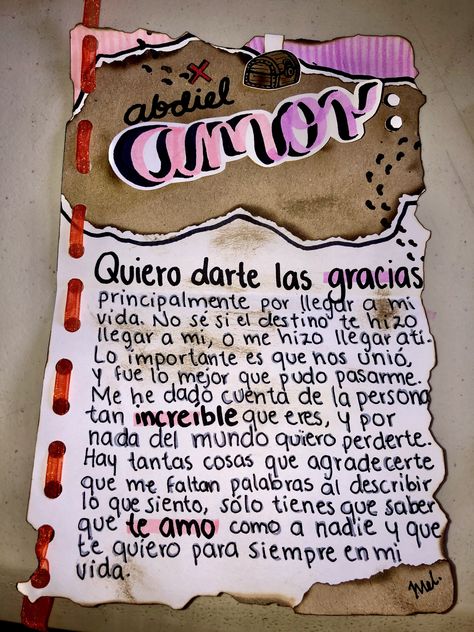 abdiel
amor
Quiero darte las gracias
principalmente por llegar a mi
vida. No sé si el destino te hizo
llegar a mi, o me hizo llegar a ti.
Lo importante es que nos unió,
y fue lo mejor que pudo pasarme.
Me he dado cuenta de la persona
tan increíble que eres, y por
nada del mundo quiero perderte.
Hay tantas cosas que agradecerte
que me faltan palabras al describir
lo que siento, sólo tienes que saber
que te amo como a nadie y que
te quiero para siempre en mi
vida.
Mel.